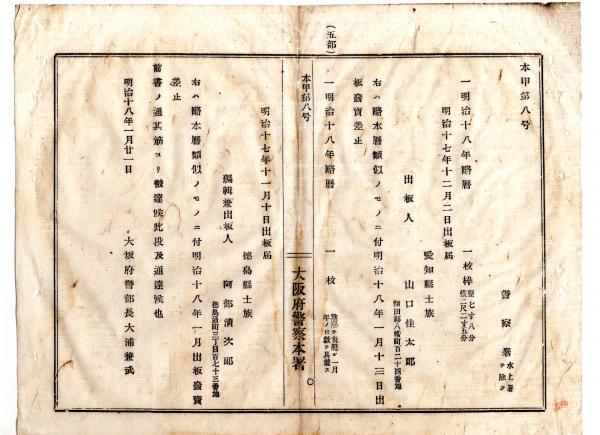 本甲第八号
警察署 水上署ヲ除ク
一明治十八年略暦 一枚枠 竪七寸八分 横二尺二寸五分
明治十七年十二月二日出板届
愛知縣士族
出板人 山口佳太郎
額田縣八幡町百二十四番地
右ハ略本暦類似ノモノニ付明治十八年一月十三日出
板發賣差止
一明治十八年略暦 一枚
年ノ日數ヲ具載ス
(五部)
本甲第八号
大阪府警察本署
明治十七年十一月十日出板届
徳島縣士族
編輯兼出板人 阿部清次郎
徳島通町三丁目百七十三番地
右ハ略本暦類似ノモノニ付明治十八年一月出板發賣
差止
前書ノ通其筋ヨリ被達候此段及通達候也
明治十八年一月廿一日
大坂府警部長大浦兼武